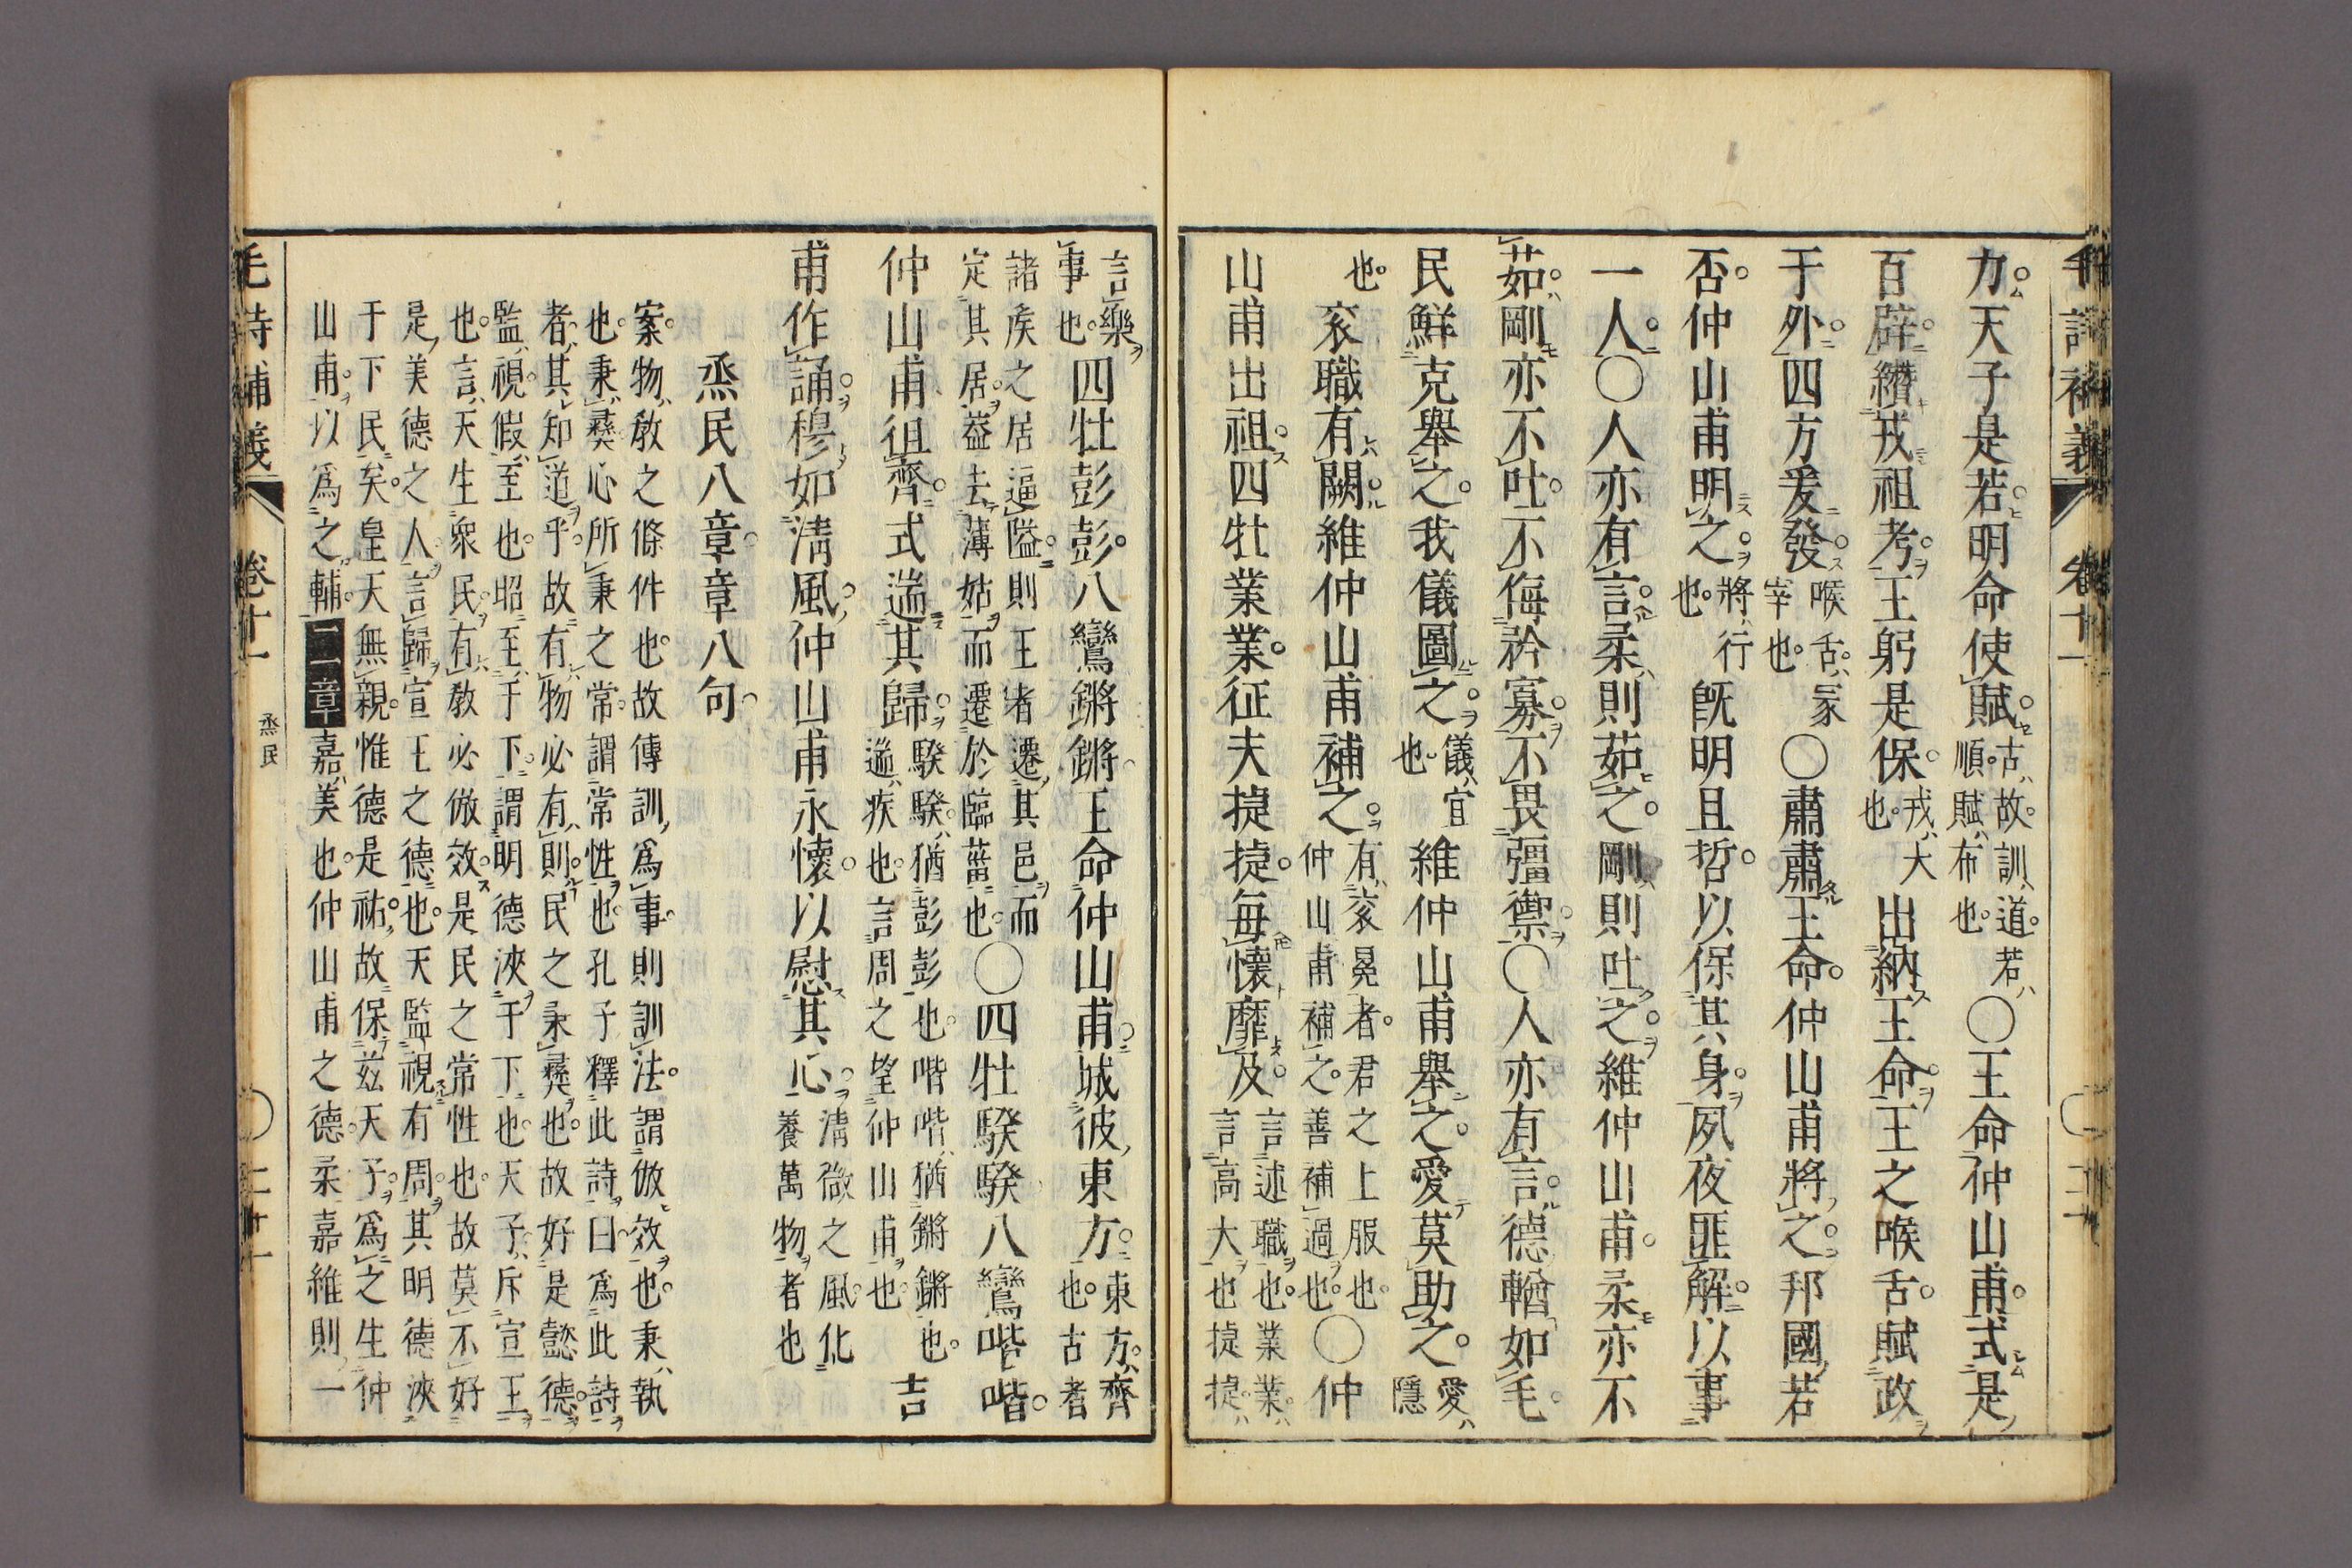 毛詩補義 卷十一 〇二十
力天子是若明命使賦古故訓道若順賦布也〇王命仲山甫式是
百辟纘戎祖考王躬是保戎大也出納王命王之喉舌賦政
于外四方爰發喉舌冢宰也〇肅肅王命仲山甫將之邦國若
否仲山甫明之將行也旣明且哲以保其身夙夜匪解以事
一人〇人亦有言柔則茹之剛則吐之維仲山甫柔亦不
茹剛亦不吐不侮矜寡不畏彊禦〇人亦有言德輶如毛
民鮮克舉之我儀圖之儀宜也維仲山甫舉之愛莫助之愛隱
也袞職有闕維仲山甫補之有袞冕者君之上服也仲山甫補之善補過也〇仲
山甫出祖四牡業業征夫捷捷每懷靡及言述職也業業言高大也捷捷
言樂事也四牡彭彭八鸞鏘鏘王命仲山甫城彼東方東方齊也古者
諸侯之居逼隘則王者遷其邑而定其居葢去薄姑而遷於臨菑也〇四牡騤騤八鸞喈喈
仲山甫徂齊式遄其歸騤騤猶彭彭也喈喈猶鏘鏘也遄疾也言周之望仲山甫也吉
甫作誦穆如淸風仲山甫永懷以慰其心淸微之風化養萬物者也
烝民八章章八句
案物敎之條件也故傳訓爲事則訓法謂倣效也秉執
也秉彝心所秉之常謂常性也孔子釋此詩曰爲此詩
者其知道乎故有物必有則民之秉彝也故好是懿德
監視假至也昭至于下謂明德浹于下也天子斥宣王
也言天生衆民有敎必倣效是民之常性也故莫不好
是美德之人言歸宣王之德也天監視有周其明德浹
于下民矣皇天無親惟德是祐故保茲天子爲之生仲
山甫以爲之輔二章嘉美也仲山甫之德柔嘉維則一
毛詩補義 卷十一 烝民 〇二十一